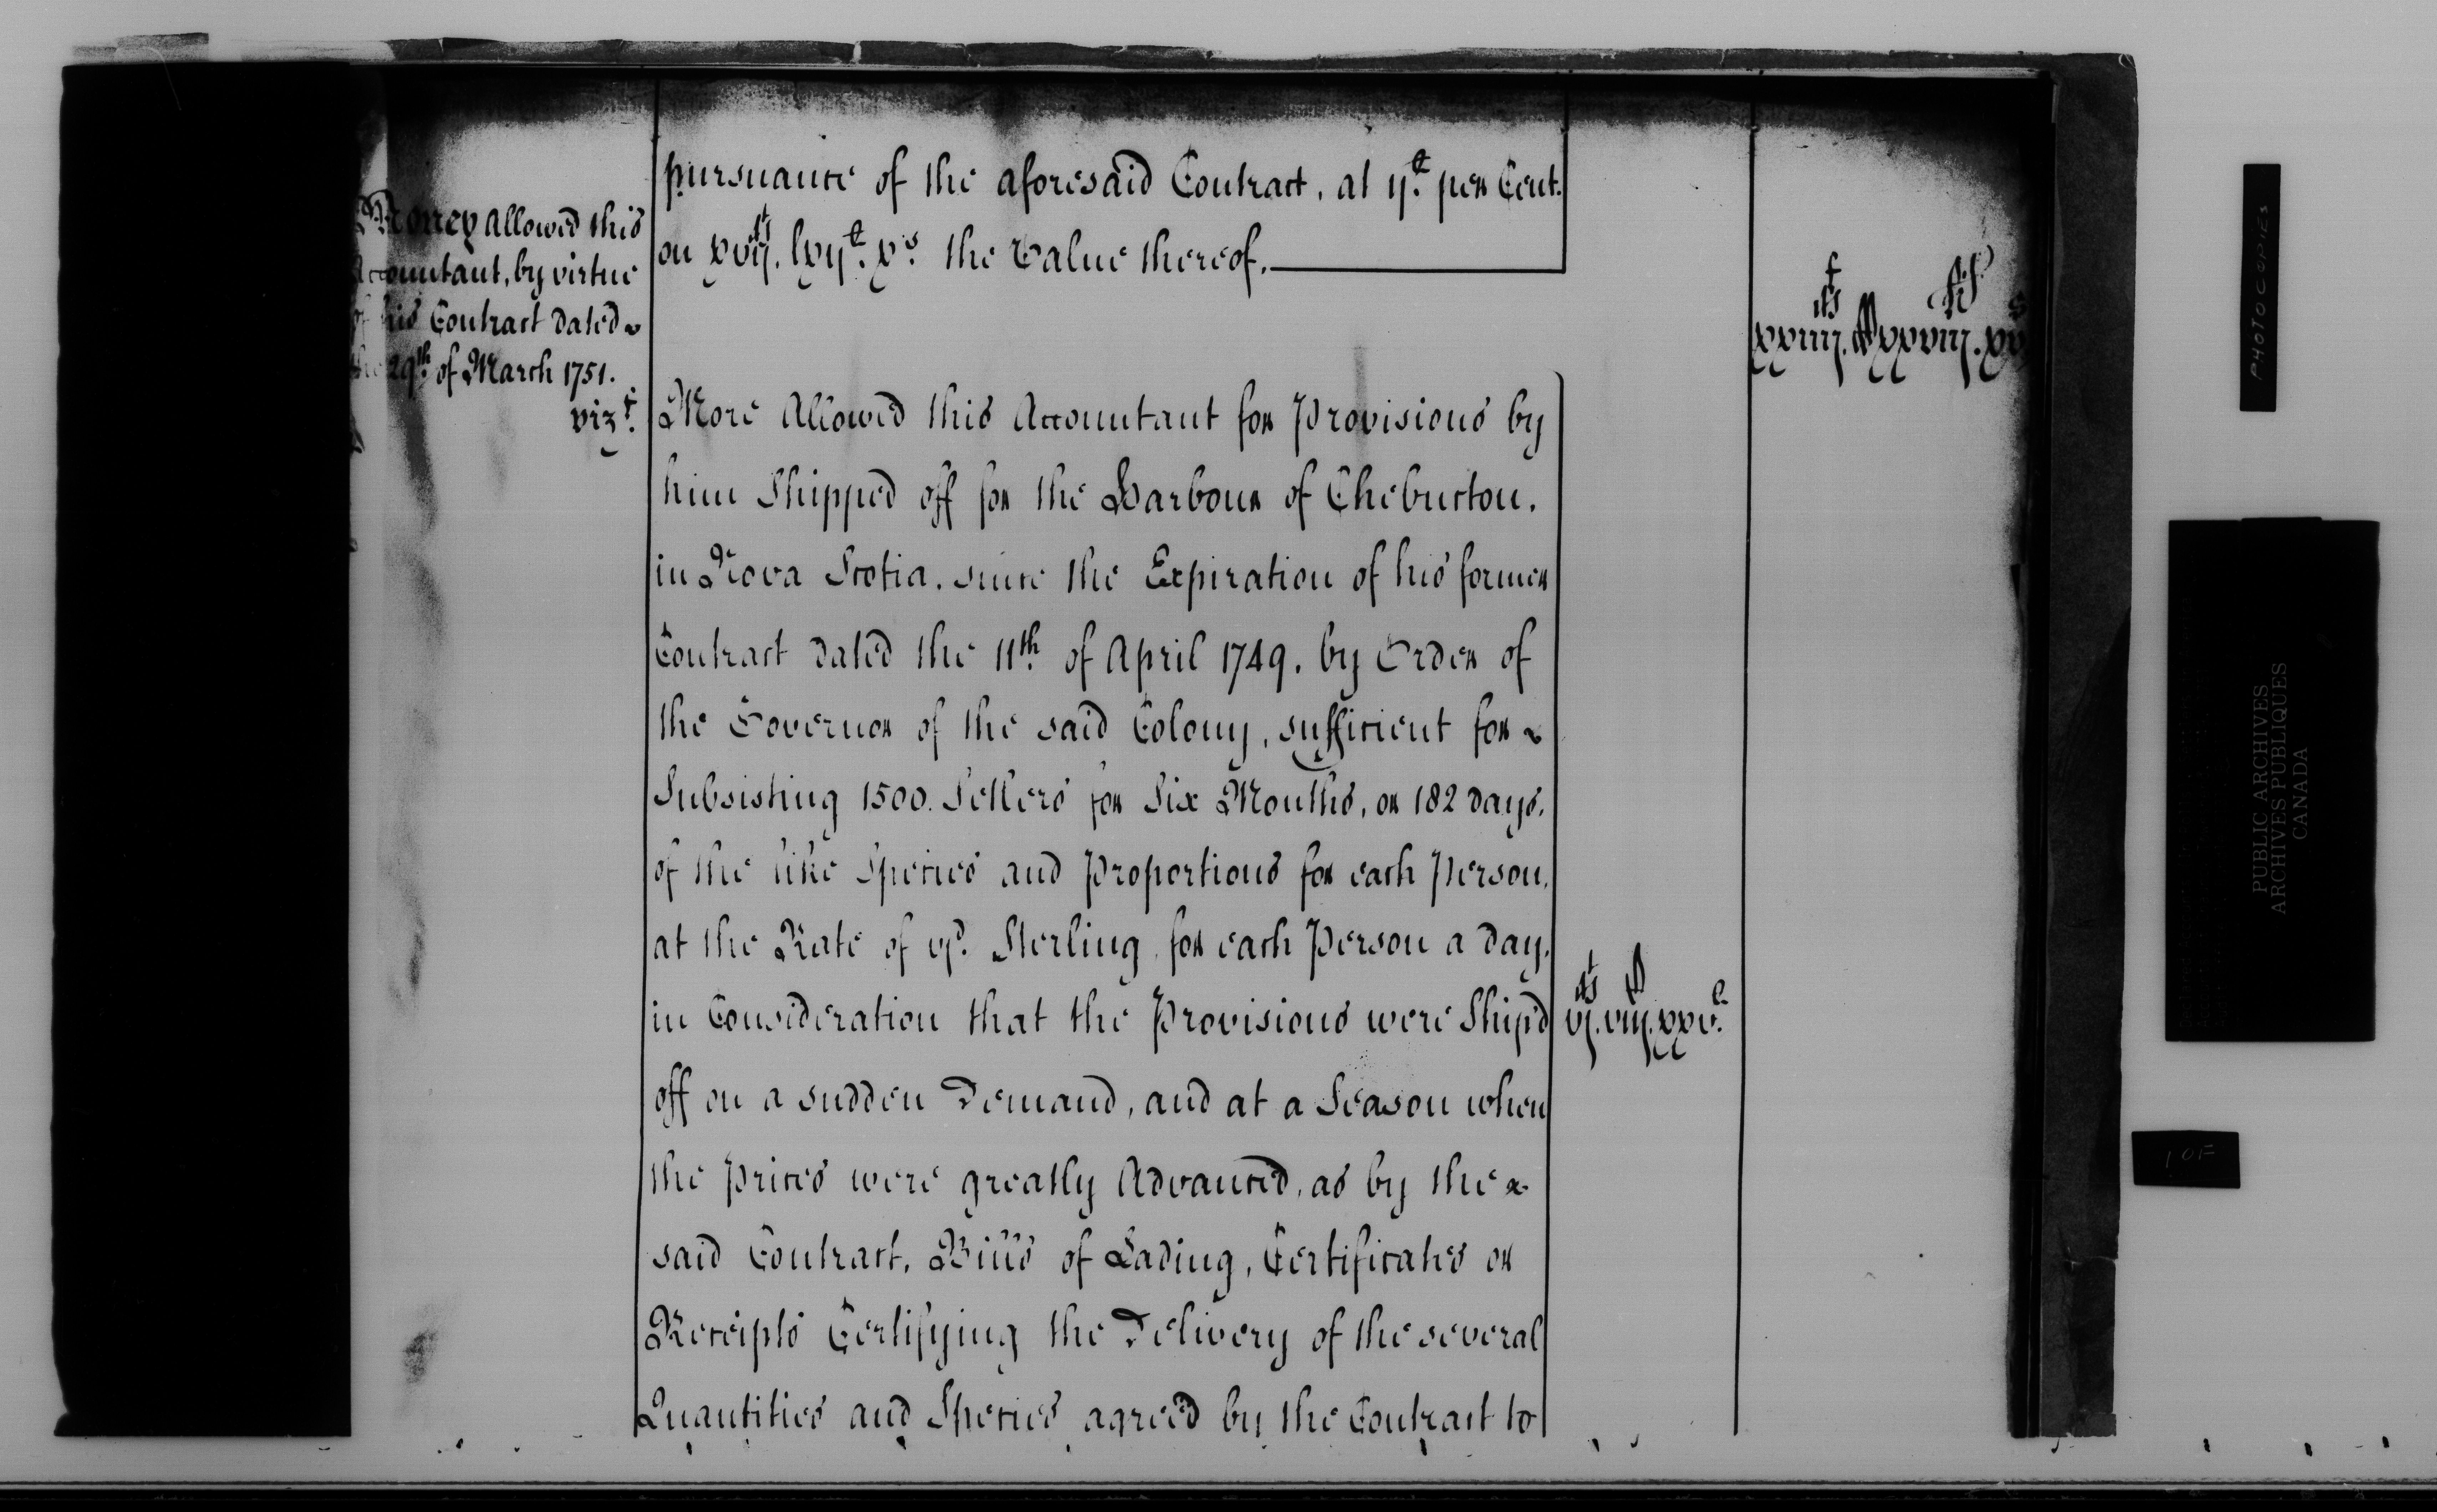 Money allowed this
Accountant, by virtue
of his Contract dated
the 29th of March 1751.
vizt.
pursuance of the aforesaid Contract, at ij.£ per Cent.
on xvijM. lxij£. xs. the Value thereof.
More Allowed this Accountant for Provisions by
him Shipped off for the Harbour of Chebucton,
in Nova Scotia, since the Expiration of his former
Contract dated the 11th of April 1749, by Order of
the Governor of the said Colony, sufficient for
Subsisting 1500. Settlers for Six Months, or 182 days,
of the like Species and Proportions for each Person,
at the Rate of vjd. Sterling, for each Person a day,
in Consideration that the Provisions were Ship'd
off on a sudden Demand, and at a Season when
the Prices were greatly Advanced, as by the
said Contract, Bills of Lading, Certificates or
Receipts Certifying the Delivery of the several
Quantities and Species agreed by the Contract to
PHOTOCOPIES
PUBLIC ARCHIVES
ARCHIVES PUBLIQUES
CANADA
1 OF